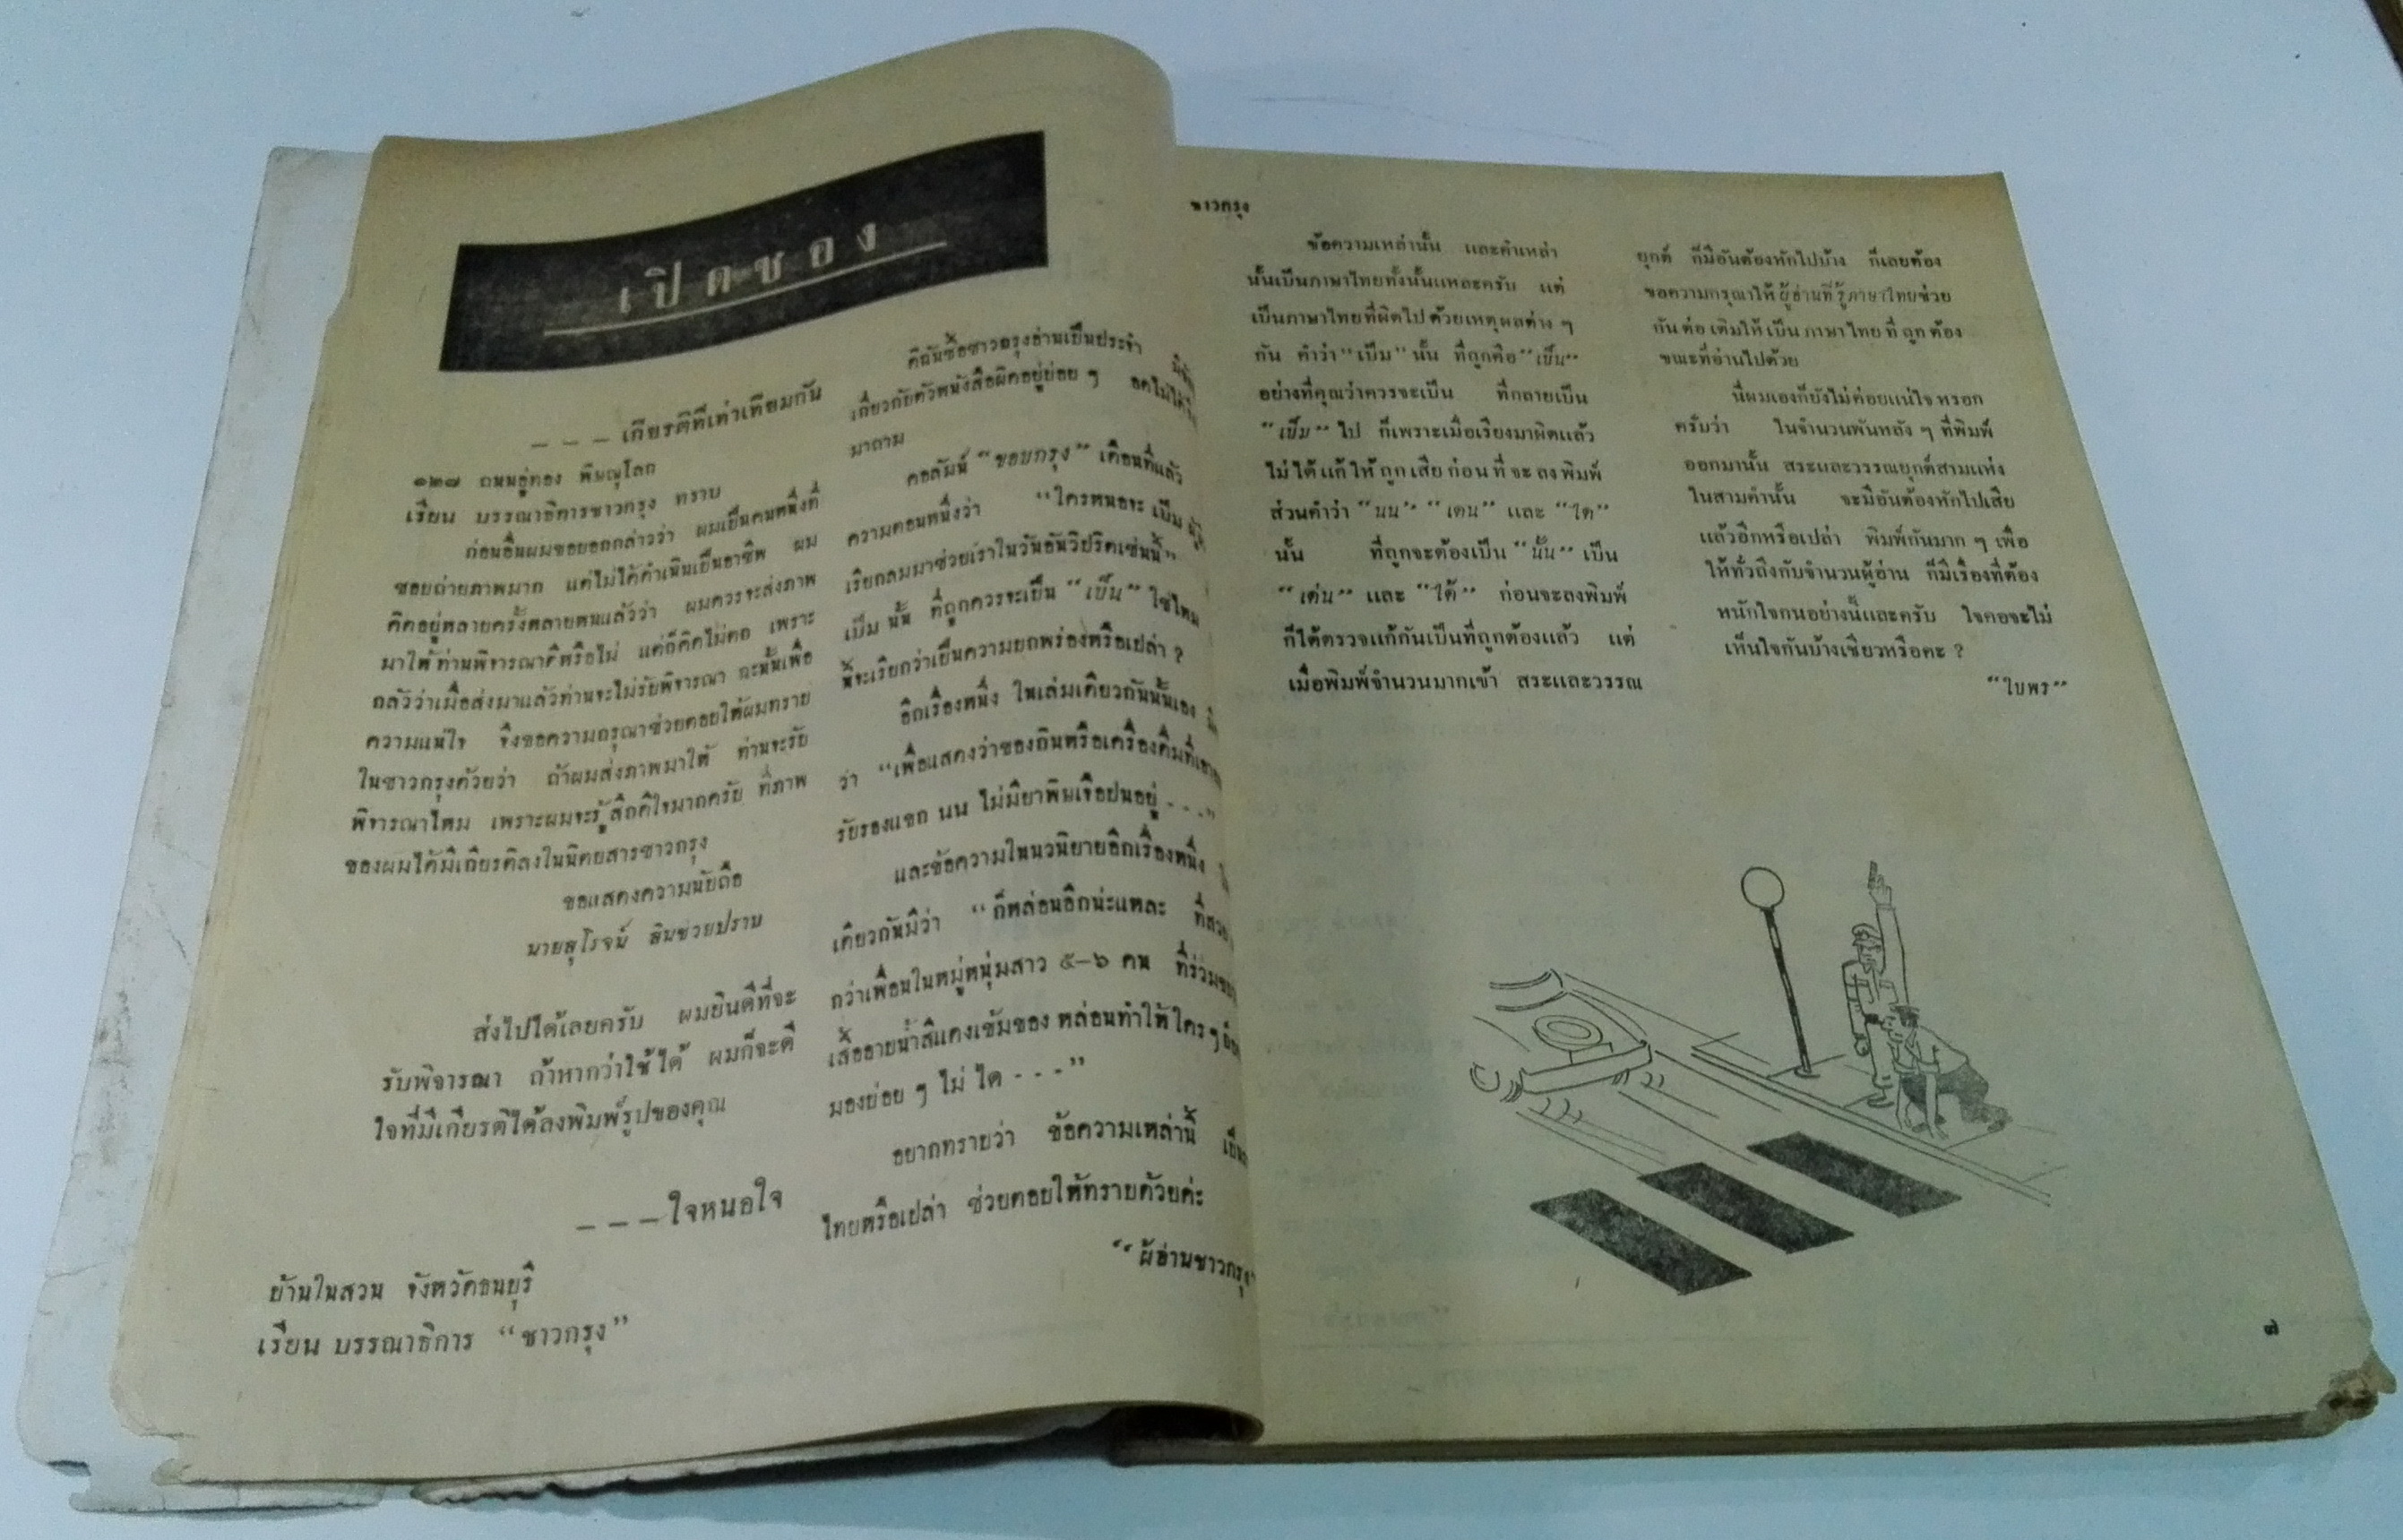 เปิดซอง
– – – เกียรติที่เท่าเทียมกัน
๑๒๗ ถนนอู่ทอง พิษณุโลก
เรียน บรรณาธิการชาวกรุง ทราบ
ก่อนอื่นผมขอบอกกล่าวว่า ผมเป็นคนหนึ่งที่
ชอบถ่ายภาพมาก แต่ไม่ได้ดำเนินเป็นอาชีพ ผม
คิดอยู่หลายครั้งหลายหนแล้วว่า ผมควรจะส่งภาพ
มาให้ท่านพิจารณาดีหรือไม่ แต่ก็คิดไม่ตก เพราะ
กลัวว่าเมื่อส่งมาแล้วท่านจะไม่รับพิจารณา ฉะนั้นเพื่อ
ความแน่ใจ จึงขอความกรุณาช่วยตอบให้ผมทราบ
ในชาวกรุงด้วยว่า ถ้าผมส่งภาพมาให้ ท่านจะรับ
พิจารณาไหม เพราะผมจะรู้สึกดีใจมากครับ ที่ภาพ
ของผมได้มีเกียรติลงในนิตยสารชาวกรุง
ขอแสดงความนับถือ
นายสุโรจน์ สินช่วยปราบ
ส่งไปได้เลยครับ ผมยินดีที่จะ
รับพิจารณา ถ้าหากว่าใช้ได้ ผมก็จะดี
ใจที่มีเกียรติได้ลงพิมพ์รูปของคุณ
– – – ใจหนอใจ
บ้านในสวน จังหวัดธนบุรี
เรียน บรรณาธิการ “ชาวกรุง”
ดิฉันซื้อชาวกรุงอ่านเป็นประจำ
เกี่ยวกับตัวหนังสือผิดอยู่บ่อย ๆ อดไม่ได้
มาถาม
คอลัมน์ “ขอบกรุง” เดือนที่แล้ว
ความตอนหนึ่งว่า “ใครหนอจะ เป็ม
เรียกลมมาช่วยเราในวันอันวิปริตเช่นนี้”
เป็ม นั้น ที่ถูกควรจะเป็น “เป็น” ใช่ไหม
นี่จะเรียกว่าเป็นความบกพร่องหรือเปล่า ?
อีกเรื่องหนึ่ง ในเล่มเดียวกันนั้นเอง
ว่า “เพื่อแสดงว่าของกินหรือเครื่องดื่มที่เอา
รับรองแขก นน ไม่มียาพิษเจือปนอยู่ - - -”
และข้อความในนวนิยายอีกเรื่องหนึ่ง
เดียวกันมีว่า “ก็หล่อนอีกน่ะแหละ ที่สวย
กว่าเพื่อนในหมู่หนุ่มสาว ๕–๖ คน ที่ร่วม
เสื้ออาบน้ำสีแดงเข้มของ หล่อนทำให้ ใคร ๆ
มองบ่อย ๆ ไม่ ได - - -”
อยากทราบว่า ข้อความเหล่านี้ เป็น
ไทยหรือเปล่า ช่วยตอบให้ทราบด้วยค่ะ
“ผู้อ่านชาวกรุง”
ชาวกรุง
ข้อความเหล่านั้น และคำเหล่า
นั้นเป็นภาษาไทยทั้งนั้นแหละครับ แต่
เป็นภาษาไทยที่ผิดไปด้วยเหตุผลต่าง ๆ
กัน คำว่า “เป็ม” นั้น ที่ถูกคือ “เป็น”
อย่างที่คุณว่าควรจะเป็น ที่กลายเป็น
“เป็ม” ไป ก็เพราะเมื่อเรียงมาผิดแล้ว
ไม่ได้แก้ให้ถูกเสียก่อนที่จะลงพิมพ์
ส่วนคำว่า “นน” “เดน” และ “ได”
นั้น ที่ถูกจะต้องเป็น “นั้น” เป็น
“เด่น” และ “ได้” ก่อนจะลงพิมพ์
ก็ได้ตรวจแก้กันเป็นที่ถูกต้องแล้ว แต่
เมื่อพิมพ์จำนวนมากเข้า สระและวรรณ
ยุกต์ ก็มีอันต้องหักไปบ้าง ก็เลยต้อง
ขอความกรุณาให้ผู้อ่านที่รู้ภาษาไทยช่วย
กันต่อเติมให้เป็นภาษาไทยที่ถูกต้อง
ขณะที่อ่านไปด้วย
นี่ผมเองก็ยังไม่ค่อยแน่ใจหรอก
ครับว่า ในจำนวนพันหลัง ๆ ที่พิมพ์
ออกมานั้น สระและวรรณยุกต์สามแห่ง
ในสามคำนั้น จะมีอันต้องหักไปเสีย
แล้วอีกหรือเปล่า พิมพ์กันมาก ๆ เพื่อ
ให้ทั่วถึงกับจำนวนผู้อ่าน ก็มีเรื่องที่ต้อง
หนักใจกนอย่างนี้แหละครับ ใจคอจะไม่
เห็นใจกันบ้างเชียวหรือคะ ?
“ใบพร”
๗